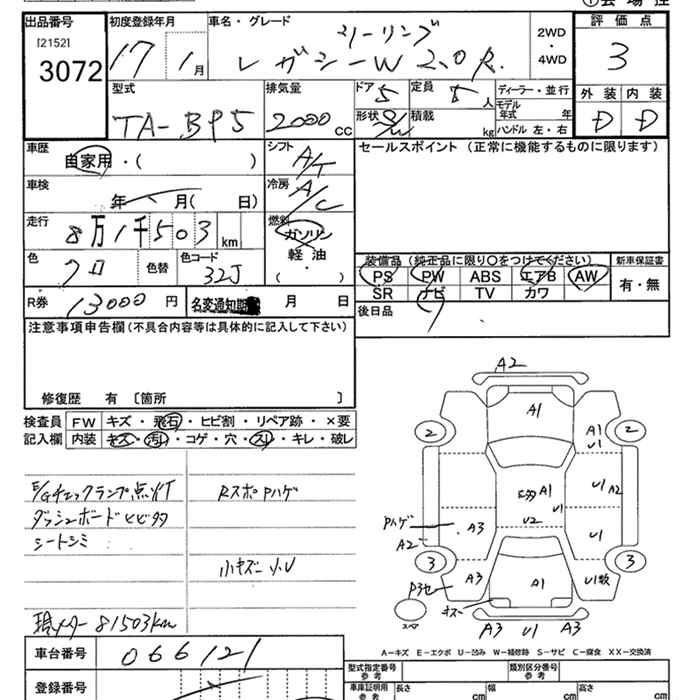 出品番号 初度登録年月 車名・グレード 2WD・4WD 評価点
[2152] 3072 17年 1月 ツーリング レガシーW 2.0R. 3
型式 排気量 ドア 定員 ディーラー・並行 外装 内装
TA-BP5 2000cc 5 5人 モデル年式 年 D D
形状 S/W 積載 kg ハンドル 左・右
車歴 自家用・( ) シフト A/T セールスポイント (正常に機能するものに限ります)
車検 年 月( 日) 冷房 A/C
走行 8万1千503km 燃料 ガソリン 軽油 ( ・ )
色 クロ 色替 色コード 32J 装備品 (純正品に限り○をつけてください) 新車保証書
PS PW ABS エアB AW 有・無
SR ナビ TV カワ
R券 13000円 名変通知期限 月 日 後日品
注意事項申告欄(不具合内容等は具体的に記入して下さい)
修復歴 有 〔箇所
検査員記入欄 FW キズ・飛石・ヒビ割・リペア跡・×要
内装 キズ・汚れ・コゲ・穴・スレ・キレ・破レ
E/Gチェックランプ点灯 Rスポ Pハゲ
ダッシュボードヒビ多
シートシミ
小キズ 小U
現メーター 81503km
A2
A1
2 2
A1 U1
A1 U1 U1 A2
U2
Pハゲ A3 U1
A2
3 3
P3セ A3 A1 U1数
キズ
スペア A3 U1 A3
A-キズ E-エクボ U-凹み W-補修跡 S-サビ C-腐食 XX-交換済
車台番号 066121 型式指定番号 参考 類別区分番号 参考
登録番号 車庫証明用 参考 長さ cm 幅 cm 高さ cm